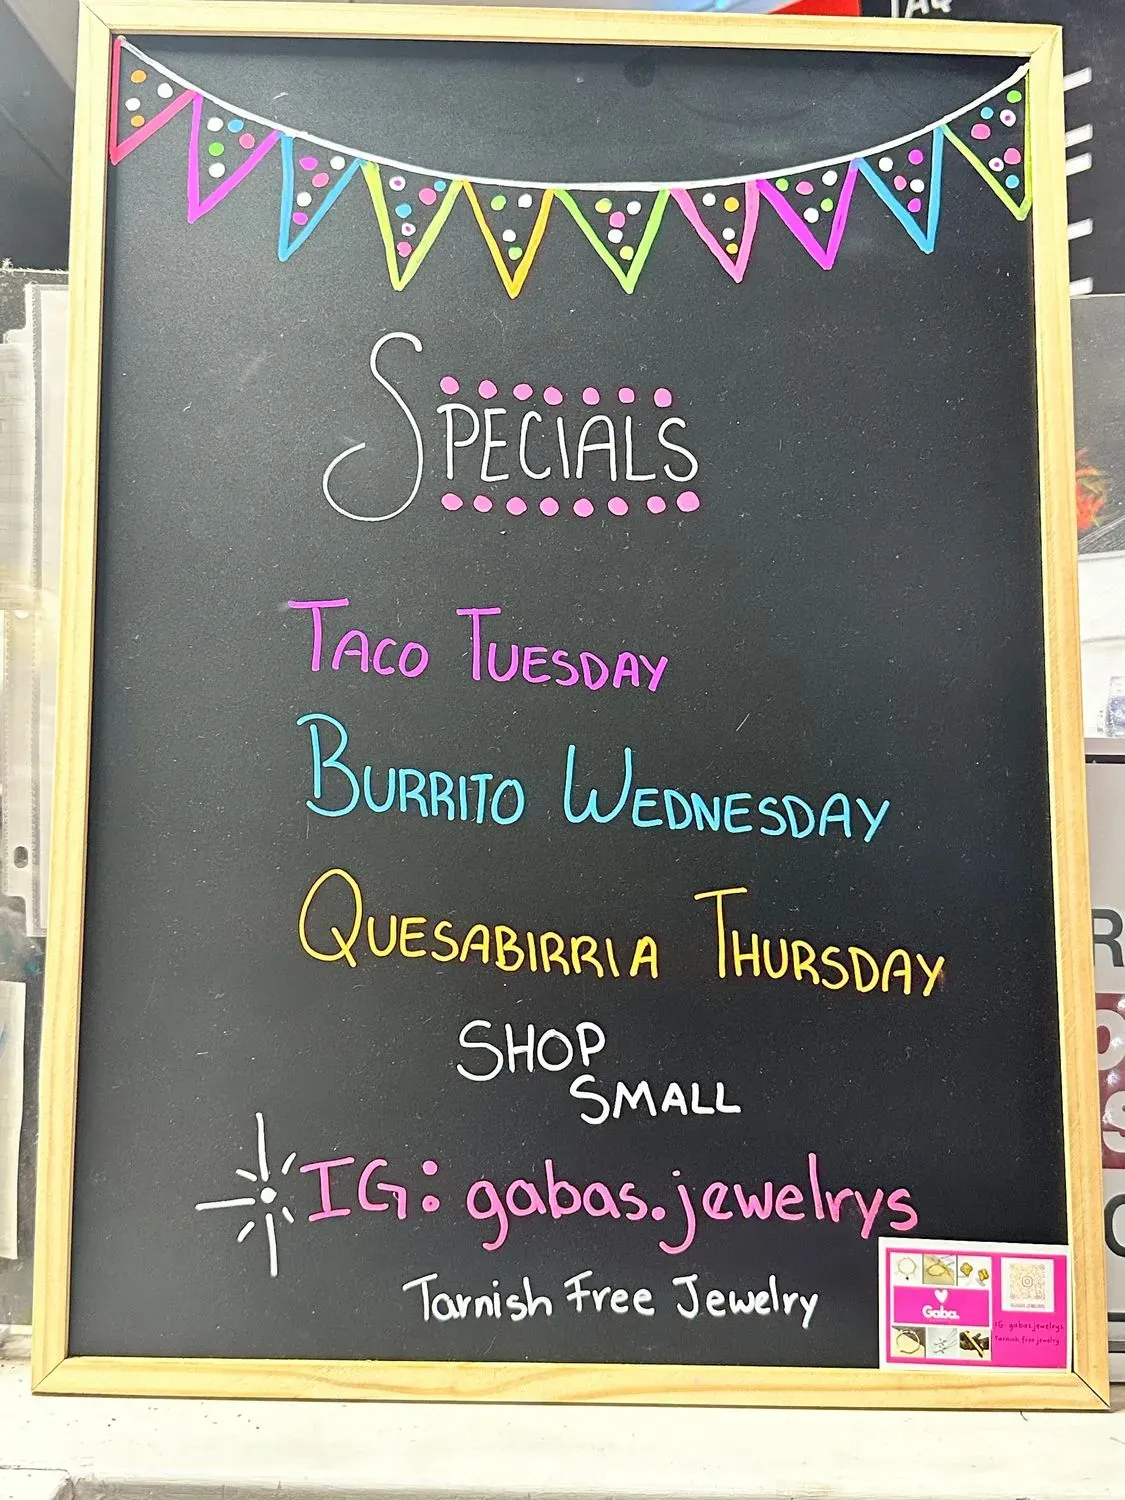 SPECIALS
TACO TUESDAY
BURRITO WEDNESDAY
QUESABIRRIA THURSDAY
SHOP
SMALL
IG: gabas.jewelrys
Tarnish Free Jewelry
Gaba.
IG: gabas.jewelrys
Tarnish free jewelry